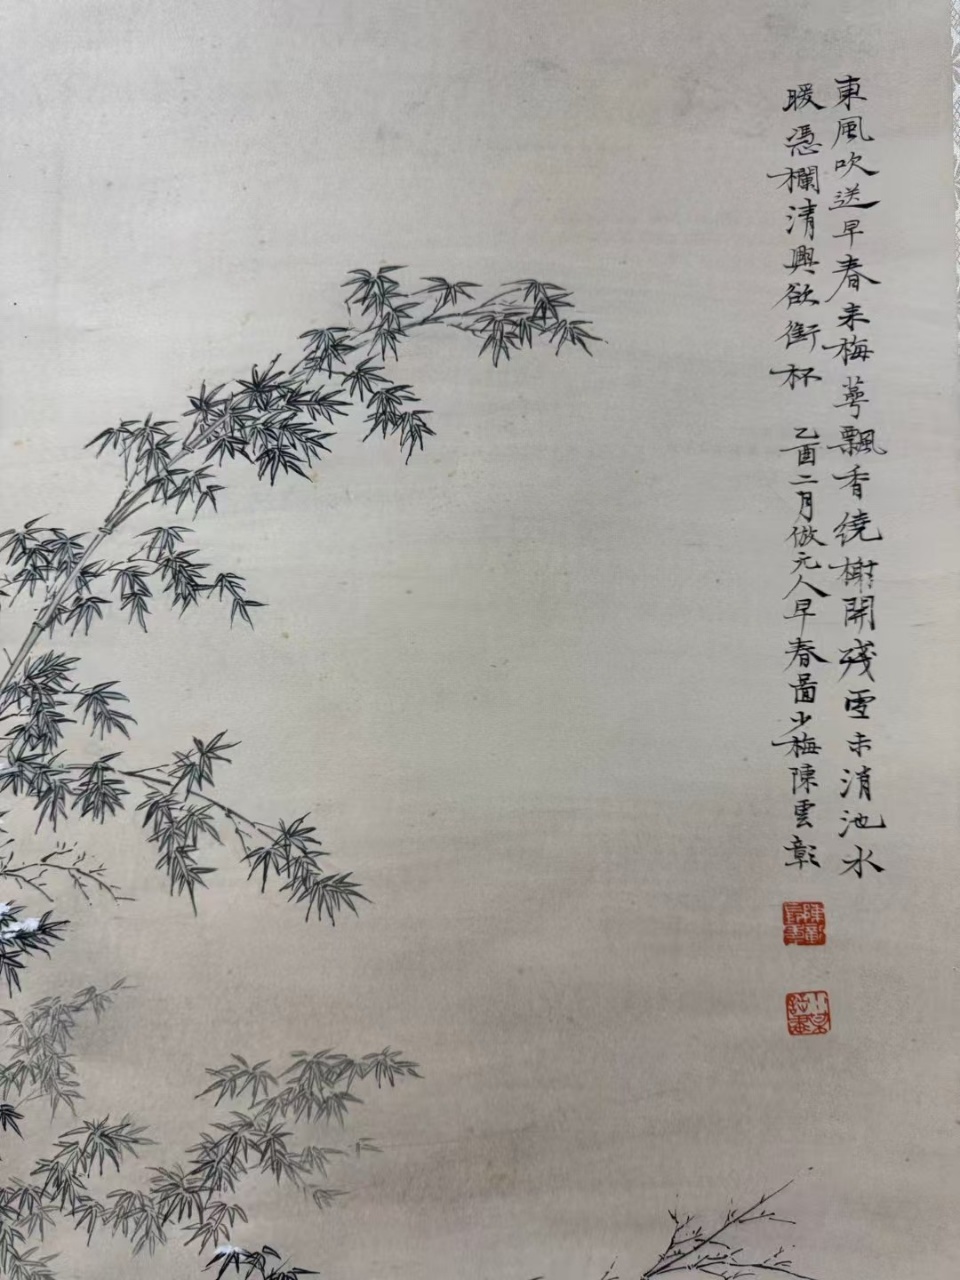 東風吹送早春来梅萼飄香繞榭開殘雪未消池水
暖憑欄清興欲銜杯 乙酉二月倣元人早春啚少梅陳雲彰